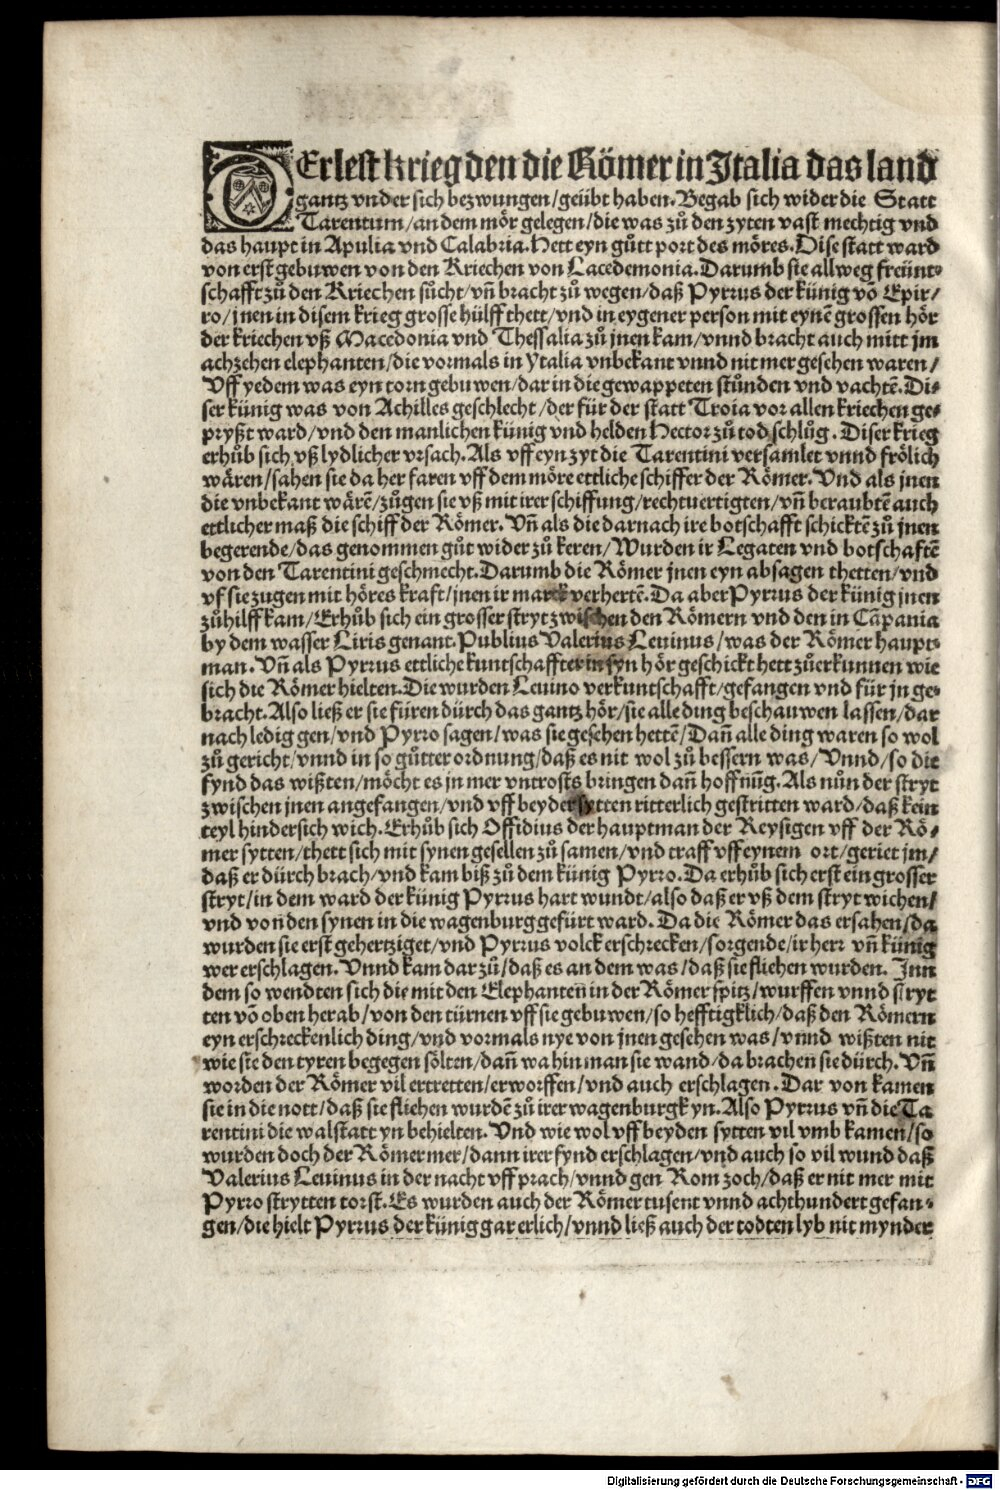 DEr lest krieg den die Römer in Italia das land
gantz vnder sich bezwungen/geübt haben. Begab sich wider die Statt
Tarentum/an dem mör gelegen/die was zů den zyten vast mechtig vnd
das haupt in Apulia vnd Calabria. Hett eyn gůtt port des möres. Dise statt ward
von erst gebuwen von den Kriechen von Lacedemonia. Darumb sie allweg freünt⸗
schafft zů den Kriechen sůcht/vñ bracht zů wegen/daß Pyrrus der künig võ Epir/
ro/jnen in disem krieg grosse hülff thett/vnd in eygener person mit eynẽ grossen hör
der kriechen vß Macedonia vnd Thessalia zů jnen kam/vnnd bracht auch mitt jm
achzehen elephanten/die vormals in Ytalia vnbekant vnnd nit mer gesehen waren/
Vff yedem was eyn torn gebuwen/dar in die gewappeten stůnden vnd vachtẽ. Di⸗
ser künig was von Achilles geschlecht/der für der statt Troia vor allen kriechen ge⸗
pryßt ward/vnd den manlichen künig vnd helden Hector zů tod schlůg. Diser krieg
erhůb sich vß lydlicher vrsach. Als vff eyn zyt die Tarentini versamlet vnnd frölich
wären/sahen sie da her faren vff dem möre ettliche schiffer der Römer. Vnd als jnen
die vnbekant wärẽ/zůgen sie vß mit irer schiffung/rechtuertigten/vñ beraubtẽ auch
ettlicher maß die schiff der Römer. Vñ als die darnach ire botschafft schicktẽ zů jnen
begerende/das genommen gůt wider zů keren/Wurden ir Legaten vnd botschaftẽ
von den Tarentini geschmecht. Darumb die Römer jnen eyn absagen thetten/vnd
vf sie zugen mit höres kraft/jnen ir marck verhertẽ. Da aber Pyrrus der künig jnen
zůhilff kam/Erhůb sich ein grosser stryt zwischen den Römern vnd den in Cãpania
by dem wasser Liris genant. Publius Valerius Leuinus/was der Römer haupt⸗
man. Vñ als Pyrrus ettliche kuntschaffter in syn hör geschickt hett zůerkunnen wie
sich die Römer hielten. Die wurden Leuino verkuntschafft/gefangen vnd für jn ge⸗
bracht. Also ließ er sie füren dürch das gantz hör/sie alle ding beschauwen lassen/dar
nach ledig gen/vnd Pyrro sagen/was sie gesehen hettẽ/Dañ alle ding waren so wol
zů gericht/vnnd in so gůtter ordnung/daß es nit wol zů bessern was/Vnnd/so die
fynd das wißten/möcht es jn mer vntrosts bringen dañ hoffnũg. Als nůn der stryt
zwischen jnen angefangen/vnd vff beyder sytten ritterlich gestritten ward/daß kein
teyl hindersich wich. Erhůb sich Offidius der hauptman der Reysigen vff der Rö/
mer sytten/thett sich mit synen gesellen zů samen/vnd traff vff eynem ort/geriet jm/
daß er dürch brach/vnd kam biß zů dem künig Pyrro. Da erhůb sich erst ein grosser
stryt/in dem ward der künig Pyrrus hart wundt/also daß er vß dem stryt wichen/
vnd von den synen in die wagenburg gefürt ward. Da die Römer das ersahen/da
wurden sie erst gehertziget/vnd Pyrrus volck erschrecken/sorgende/ir herr vñ künig
wer erschlagen. Vnnd kam dar zů/daß es an dem was/daß sie fliehen wurden. Inn
dem so wendten sich die mit den Elephanten in der Römer spitz/wurffen vnnd stryt
ten võ oben herab/von den türnen vff sie gebuwen/so hefftigklich/daß den Römern
eyn erschreckenlich ding/vnd vormals nye von jnen gesehen was/vnnd wißten nit
wie sie den tyren begegen sölten/dañ wa hin man sie wand/da brachen sie dürch. Vñ
worden der Römer vil ertretten/erworffen/vnd auch erschlagen. Dar von kamen
sie in die nott/daß sie fliehen wurdẽ zů irer wagenburgk yn. Also Pyrrus vñ die Ta
rentini die walstatt yn behielten. Vnd wie wol vff beyden sytten vil vmb kamen/so
wurden doch der Römer mer/dann irer fynd erschlagen/vnd auch so vil wund daß
Valerius Leuinus in der nacht vff prach/vnnd gen Rom zoch/daß er nit mer mit
Pyrro strytten torst. Es wurden auch der Römer tusent vnnd achthundert gefan⸗
gen/die hielt Pyrrus der künig gar erlich/vnnd ließ auch der todten lyb nit mynder
Digitalisierung gefördert durch die Deutsche Forschungsgemeinschaft - DFG